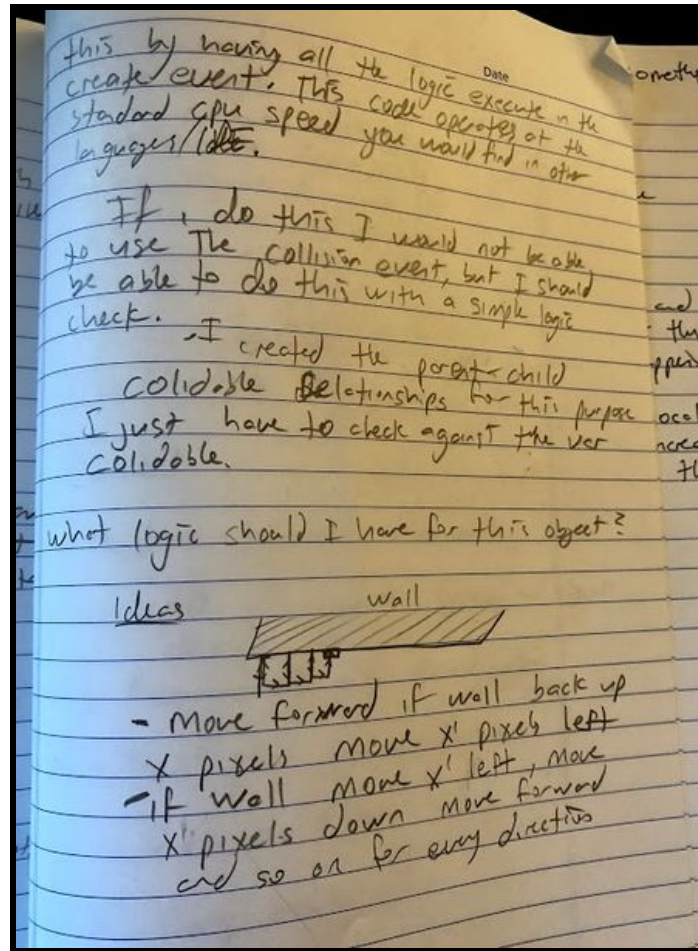 Date
this by having all the logic execute in the
create event. This code operates at the
standard cpu speed you would find in other
languages/
If, do this I would not be able
to use The collision event, but I should
be able to do this with a simple logic
check.
- I created the parent-child
colidable Relationships for this purpose
I just have to check against the var
colidable.
what logic should I have for this object?
Ideas
wall
- Move forward if wall back up
X pixels move X' pixels left
- if wall move X' left, move
X' pixels down move forward
and so on for every direction
omethi
and
thi
ppen
ocal
ncrea
th